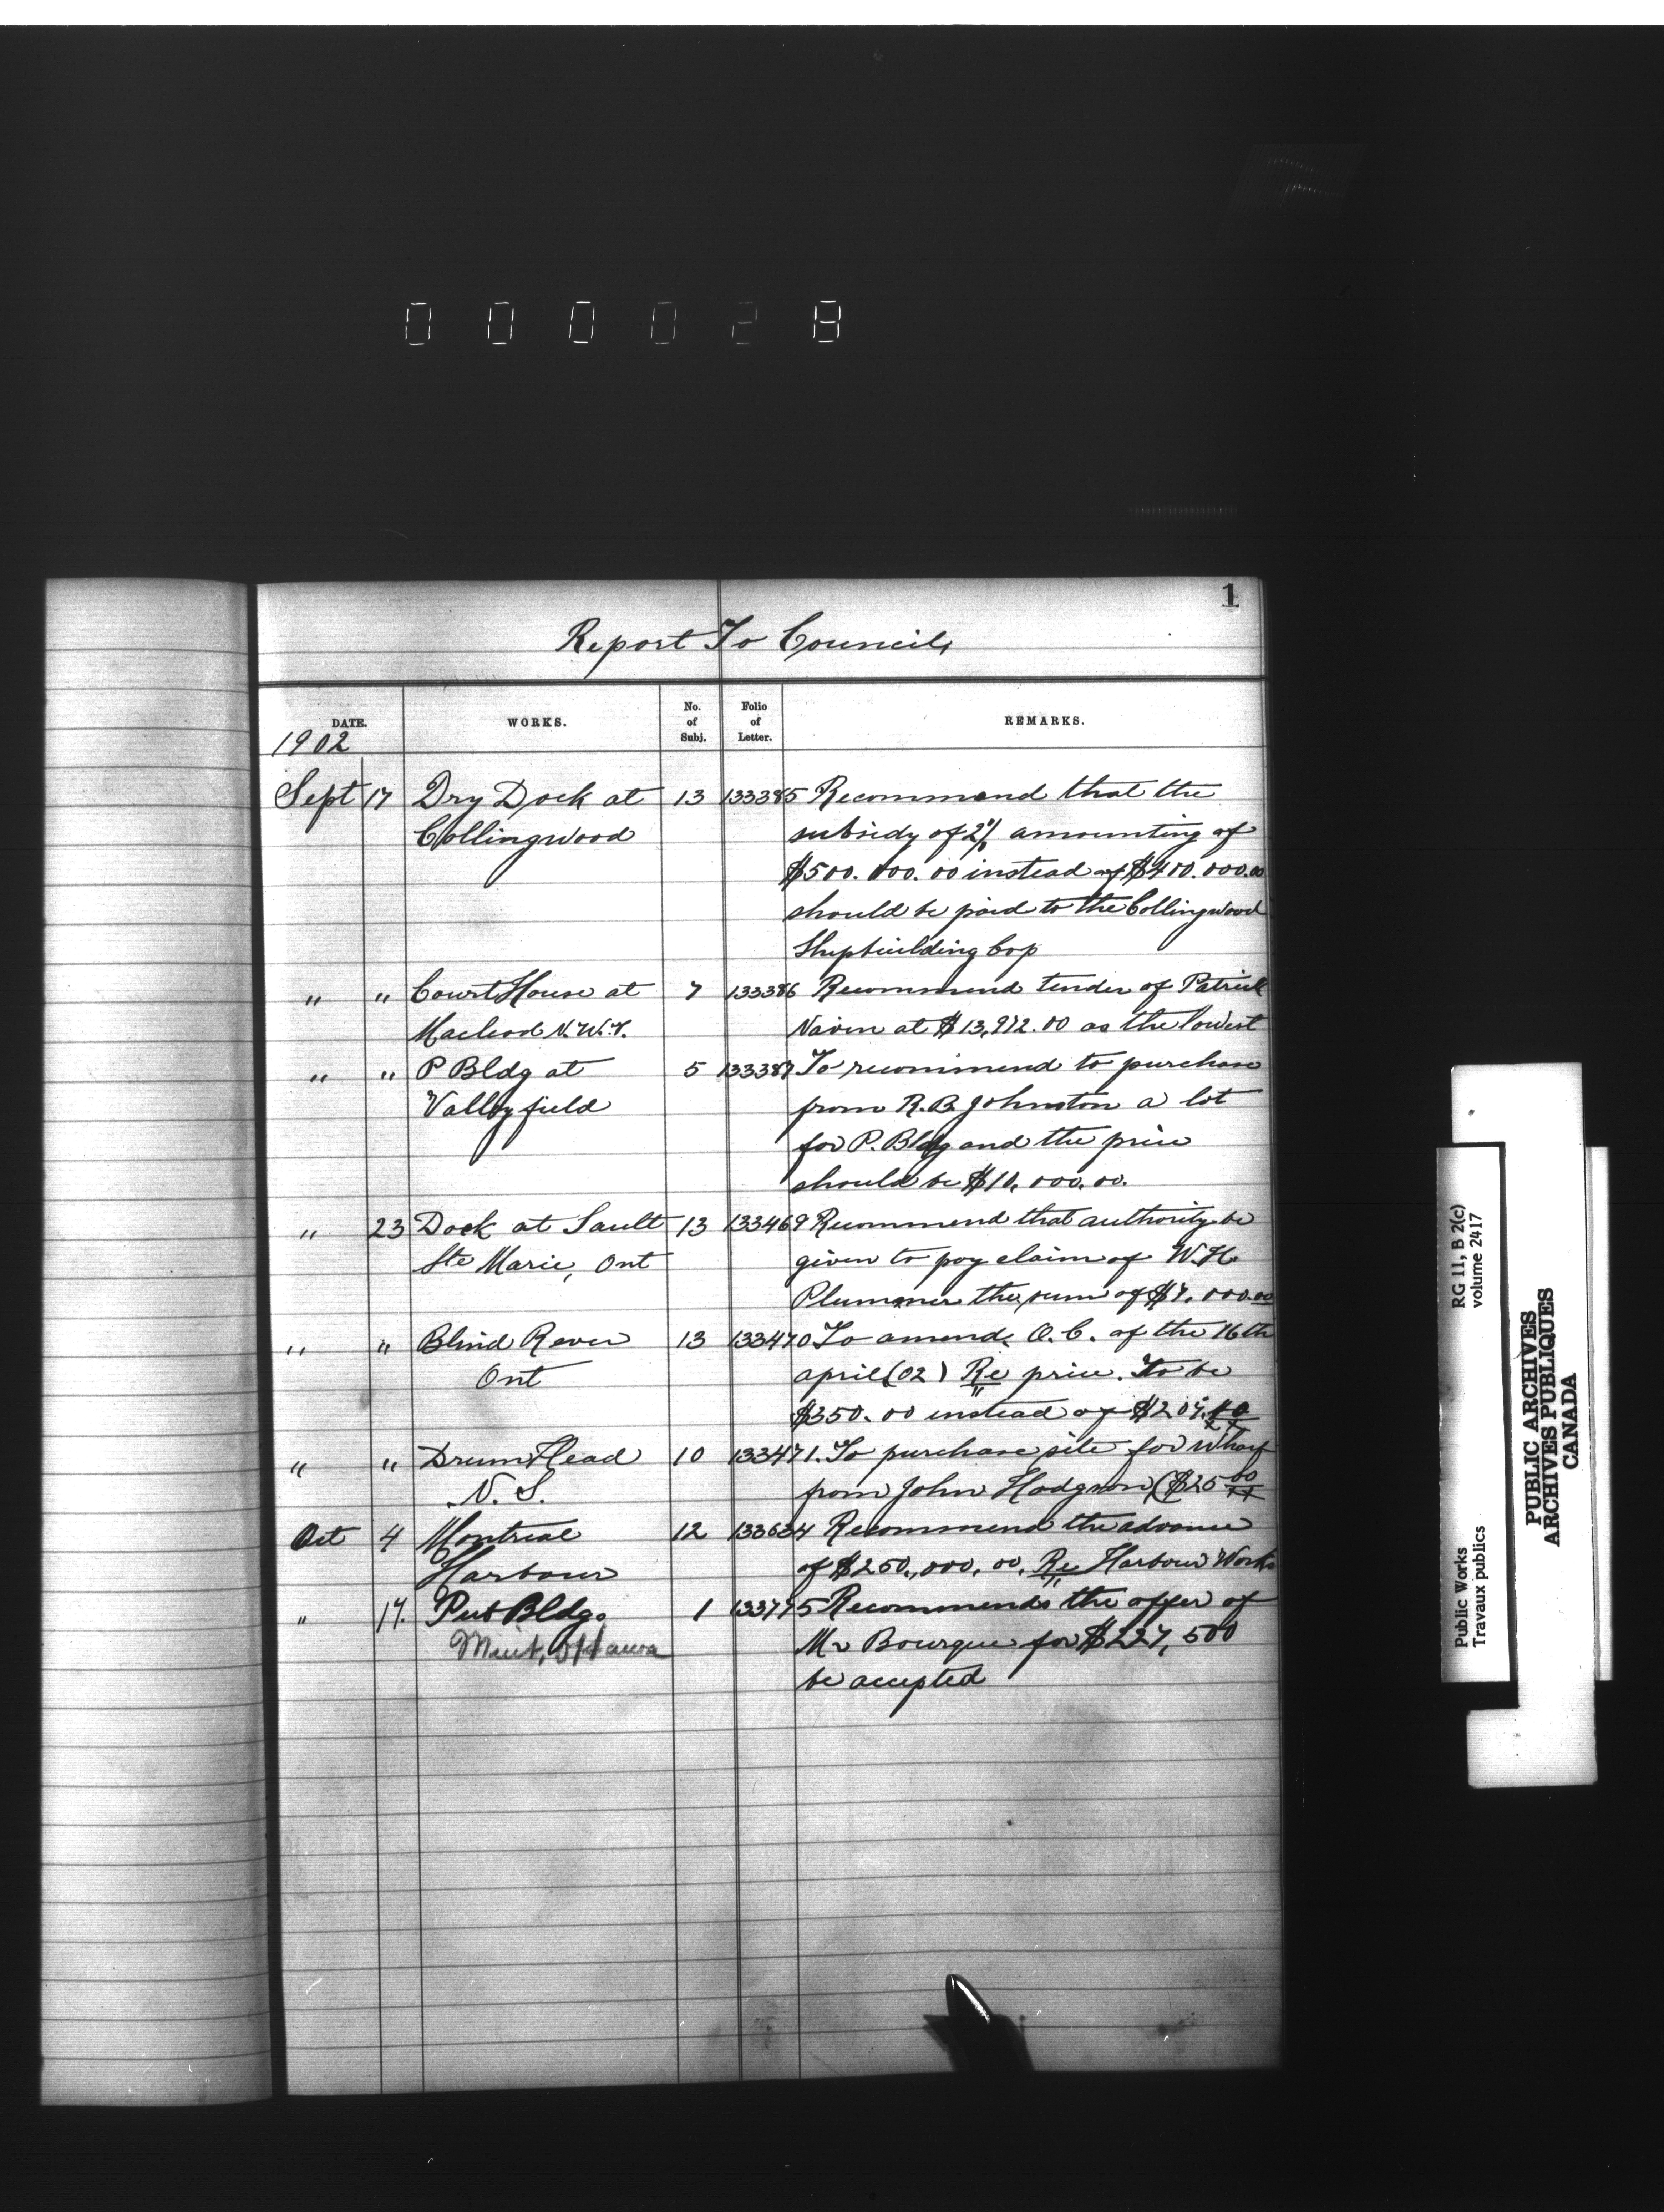 0 0 0 0 2 8
1
Report To Council,
DATE.
WORKS.
No. of Subj.
Folio of Letter.
REMARKS.
1902
Sept 17 Dry Dock at 13 133385 Recommend that the
Collingwood subsidy of 2% amounting of
$500.000.00 instead of $400.000.00
should be paid to the Collingwood
Shipbuilding Cop
" " Court House at 7 133386 Recommend tender of Patrick
Macleod N.W.T. at $13,912.00 as the lowest
" " P Bldg at 5 133387 To recommend to purchase
Valleyfield from R.B. Johnston a lot
for P. Bldg and the price
should be $10,000.00.
" 23 Dock at Sault 13 133469 Recommend that authority be
Ste Marie, Ont given to pay claim of W.H.
Plummer the sum of $7,000.00
" " Blind River 13 133470 To amend O.C. of the 16th
Ont april (02) Re price. To be
$350.00 instead of
" " Drum Head 10 133471. To purchase site for Wharf
N.S. from John Hodgson ($25 00
Oct 4 Montreal 12 133634 Recommend the advance
Harbour of $250,000.00. Re Harbour Works
" 17. Pub Bldg. 1 133775 Recommends the offer of
Mint, Ottawa Mr Bourque for $227,500
be accepted
Public Works RG 11, B 2(c)
Travaux publics volume 2417
PUBLIC ARCHIVES
ARCHIVES PUBLIQUES
CANADA